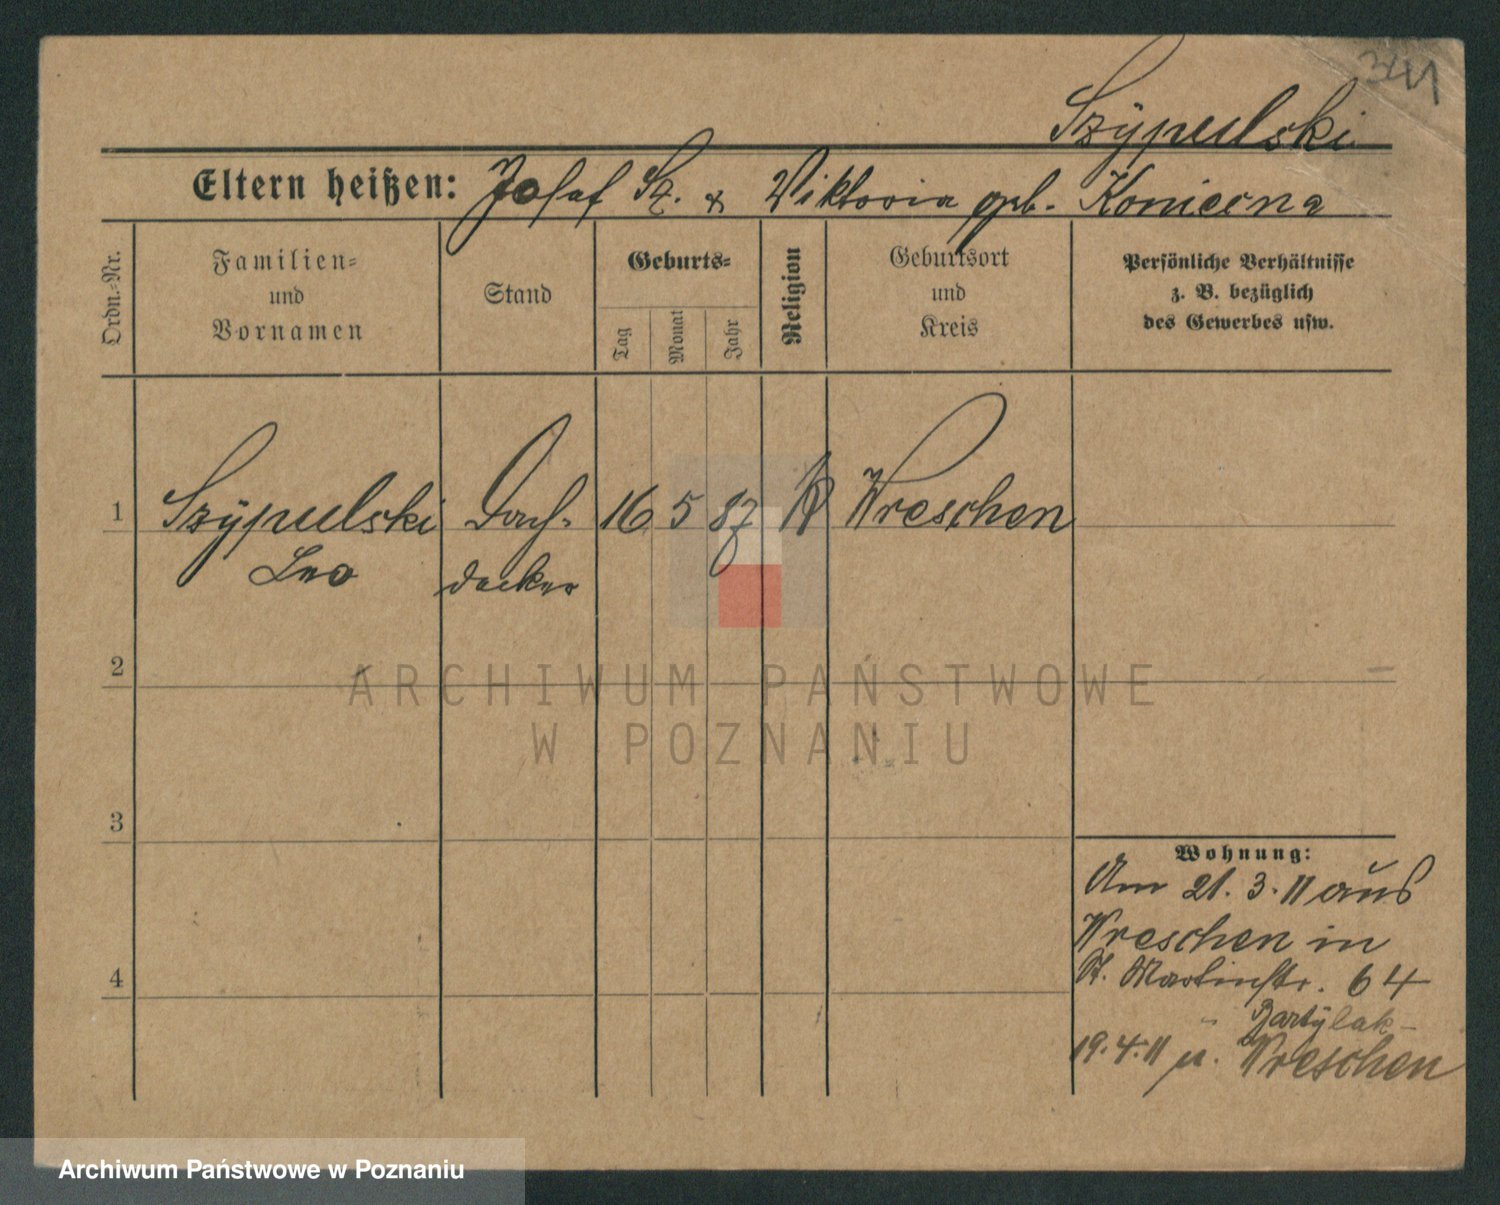 341
Szÿpulski
Eltern heißen: Josef Sz. & Viktoria geb. Konierna
Ordn.-Nr.
Familien-
und
Vornamen
Stand
Geburts-
Tag
Monat
Jahr
Religion
Geburtsort
und
Kreis
Persönliche Verhältnisse
z. B. bezüglich
des Gewerbes usw.
1 Szÿpulski Dach- 16 5 87 K Wreschen
Leo decker
2
ARCHIWUM PAŃSTWOWE
W POZNANIU
3
Wohnung:
Am 21. 3. 11 aus
Wreschen in
4
St. Martinstr. 64
Bartÿlak
19. 4. 11 n. Wreschen
Archiwum Państwowe w Poznaniu